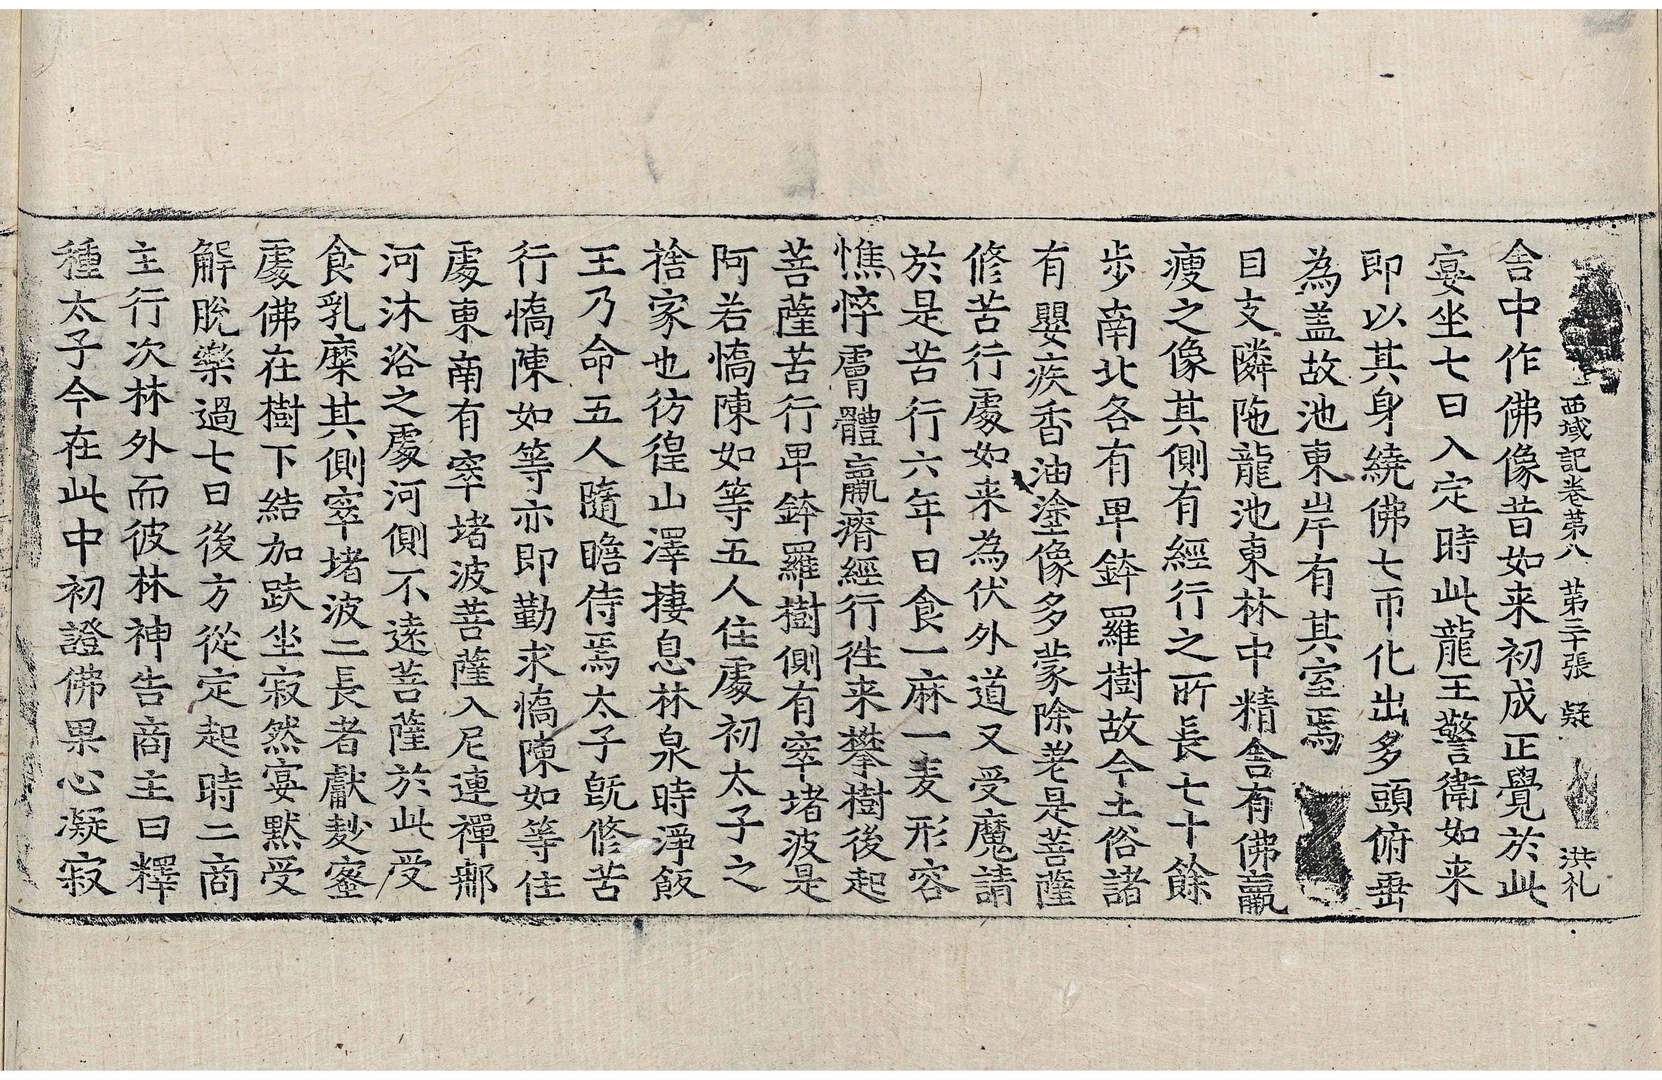 西域記卷苐八 苐三十張 疑 洪礼
舎中作佛像昔如来初成正覺於此
宴坐七日入定時此龍王警衛如来
即以其身繞佛七帀化出多頭俯垂
為盖故池東岸有其室焉
目支隣陁龍池東林中精舎有佛羸
瘦之像其側有經行之所長七十餘
步南北各有畢鉢羅樹故今土俗諸
有嬰疾香油塗像多蒙除老是菩薩
修苦行處如来為伏外道又受魔請
於是苦行六年日食一麻一麦形容
憔悴膚體羸瘠經行徃来攀樹後起
菩薩苦行畢鉢羅樹側有窣堵波是
阿若憍陳如等五人住處初太子之
捨家也彷徨山澤捿息林泉時淨飯
王乃命五人隨瞻侍焉太子旣修苦
行憍陳如等亦即勤求憍陳如等住
處東南有窣堵波菩薩入尼連禪𨚗
河沐浴之處河側不遠菩薩於此受
食乳糜其側窣堵波二長者獻麨蜜
處佛在樹下結加趺坐寂然宴黙受
解脫樂過七日後方從定起時二商
主行次林外而彼林神告商主曰釋
種太子今在此中初證佛果心凝寂